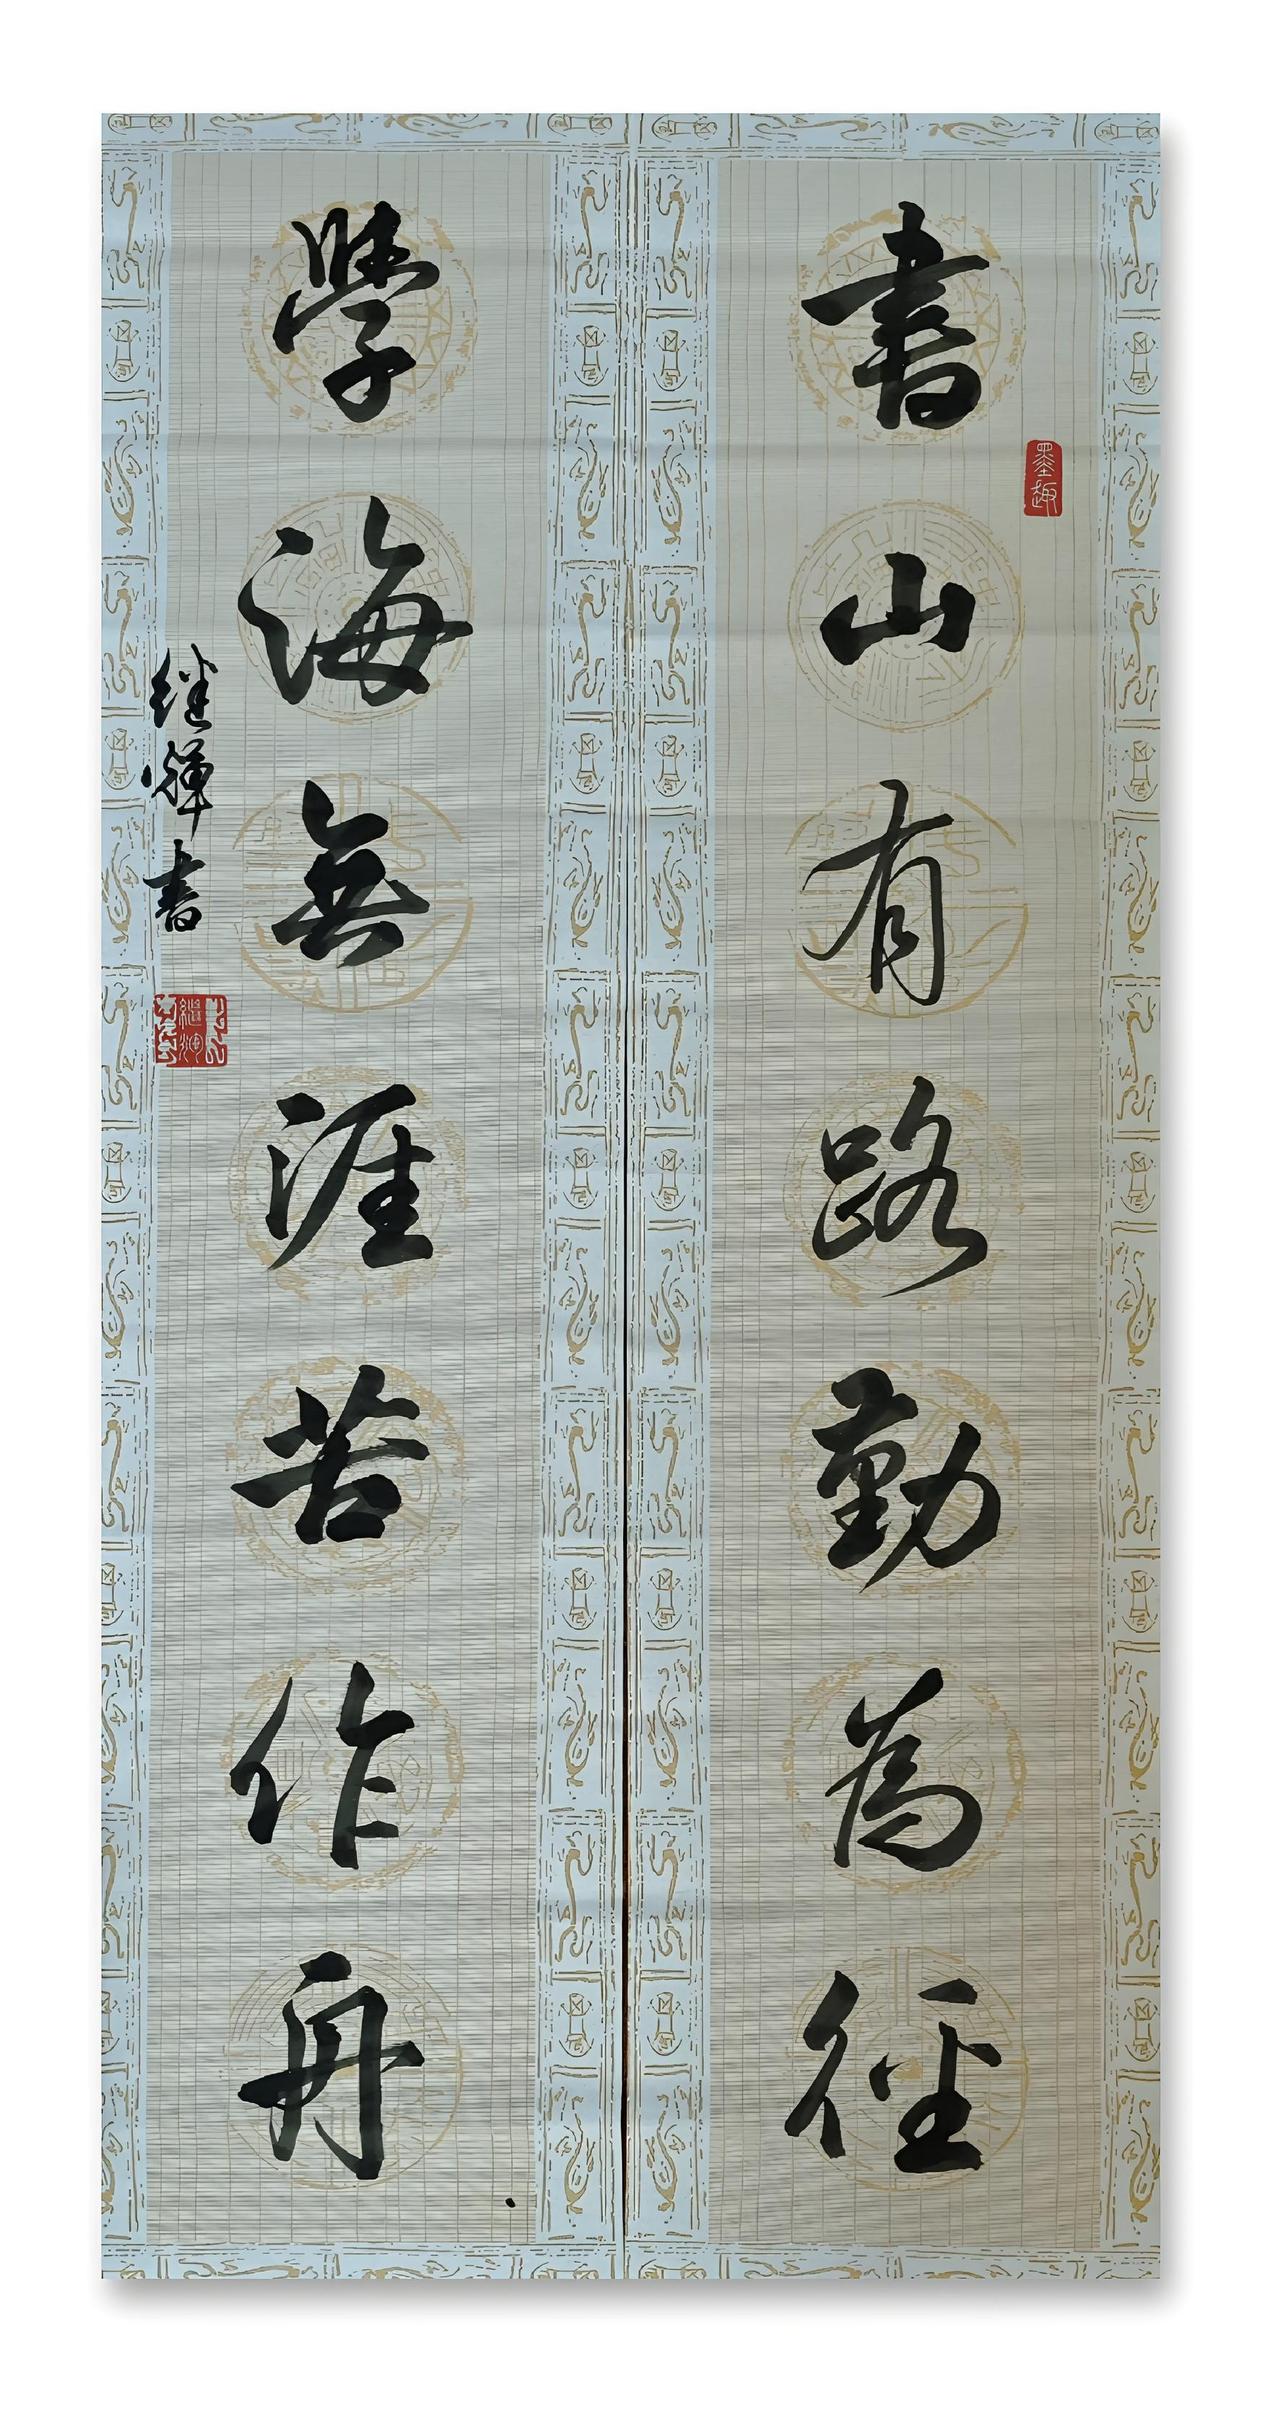 書山有路勤為徑
墨趣
學海無涯苦作舟
继輝书